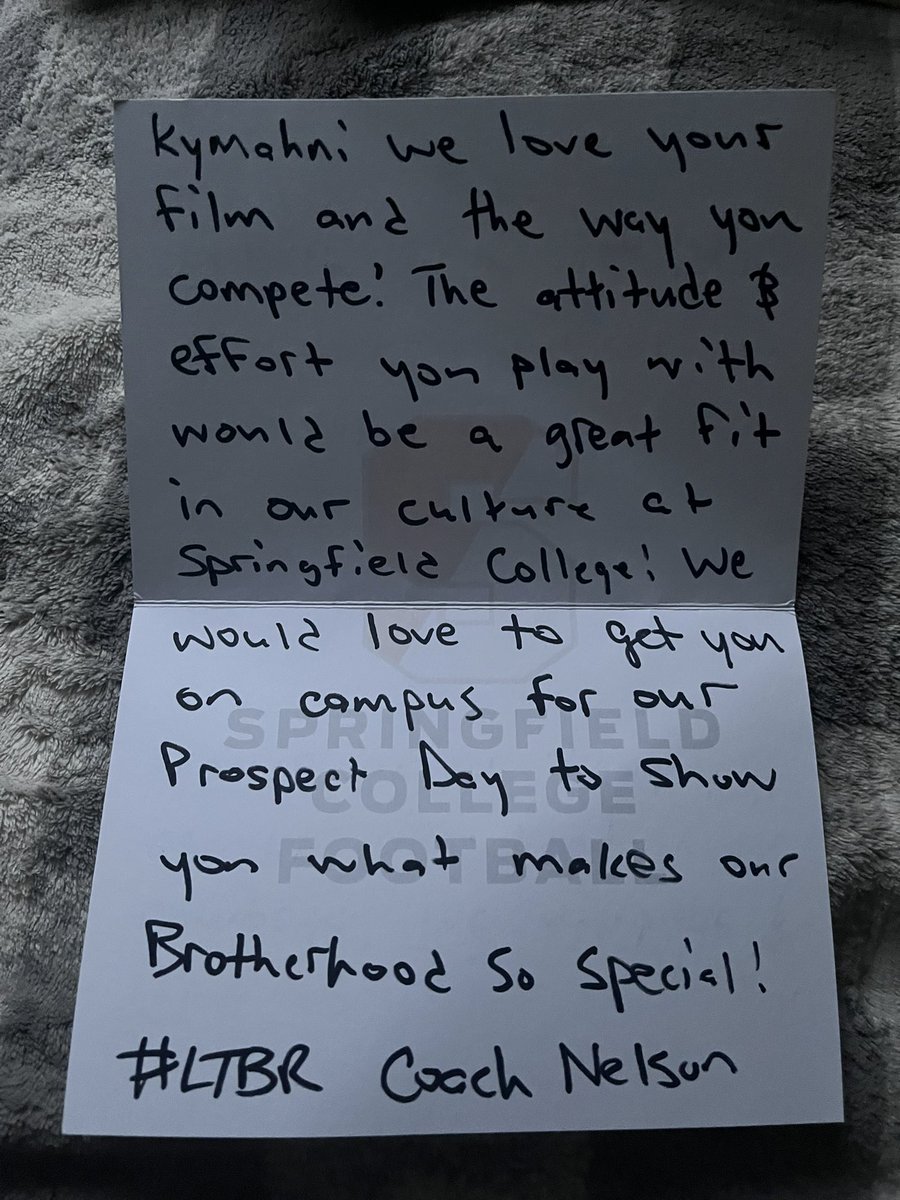 Kymahni we love your
film and the way you
compete! The attitude &
effort you play with
would be a great fit
in our culture at
Springfield College! We
would love to get you
on campus for our
SPRINGFIELD
Prospect Day to show
COLLEGE
you what makes our
FOOTBALL
Brotherhood so special!
#LTBR Coach Nelson